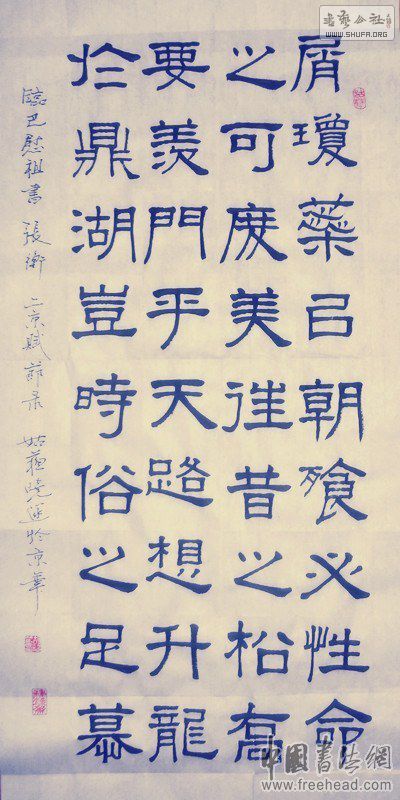 屑瓊蘂㠯朝飱必性命
之可度美往昔之松喬
要羨門乎天路想升龍
於鼎湖豈時俗之足慕
臨巴慰祖書張衡二京賦節录 姑蘇曉於京華
书艺公社
WWW.SHUFA.ORG
中國書法網
www.freehead.com